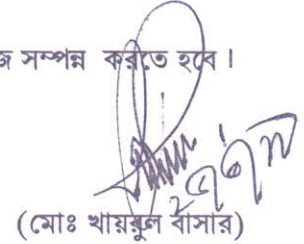 সম্পন্ন করতে হবে।
(মোঃ খায়রুল বাসার)